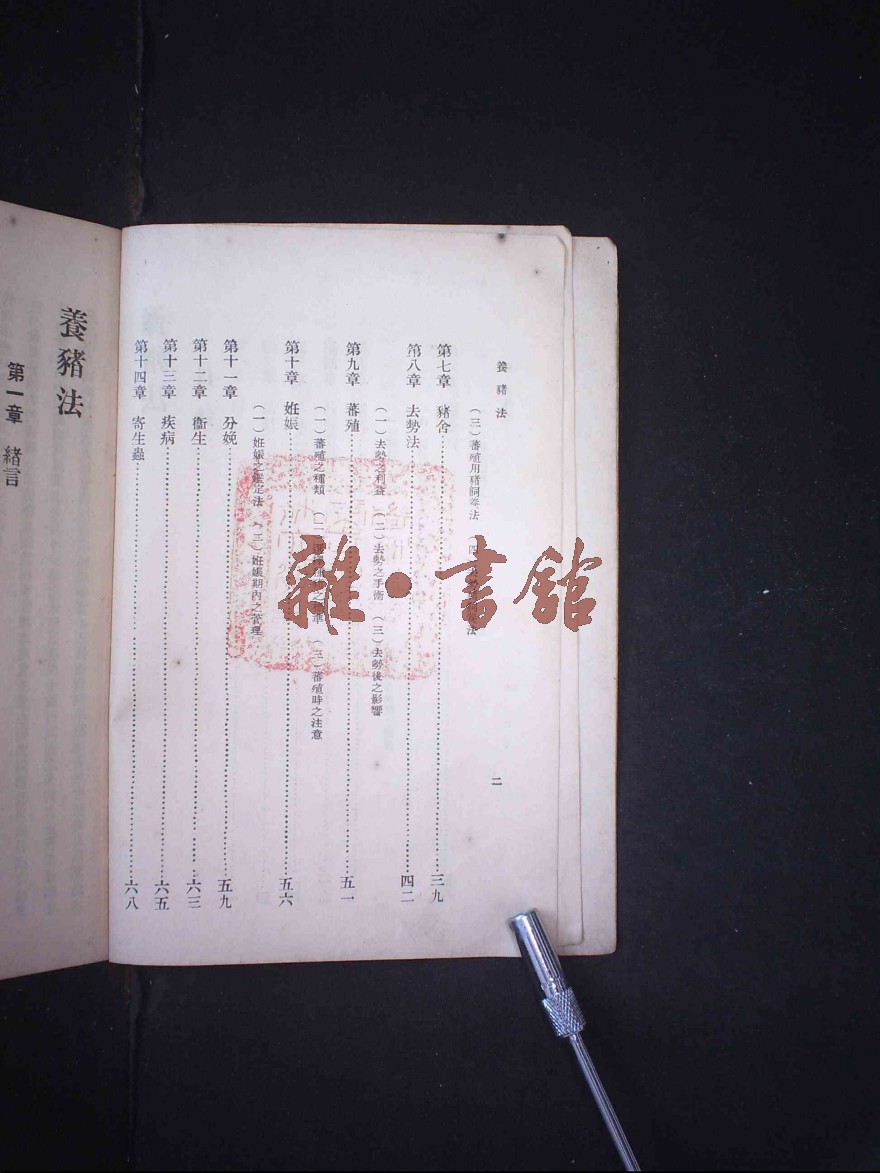 養豬法
二
（三）蕃殖用豬飼養法　（四）
第七章　豬舍……三九
第八章　去勢法……四二
（一）去勢之利益　（二）去勢之手術　（三）去勢後之影響
第九章　蕃殖……五一
（一）蕃殖之種類　（二）　（三）蕃殖時之注意
第十章　姙娠……五六
（一）姙娠之鑑定法　（二）姙娠期內之管理
第十一章　分娩……五九
第十二章　衞生……六三
第十三章　疾病……六五
第十四章　寄生蟲……六八
養豬法
第一章　緒言
雜·書館